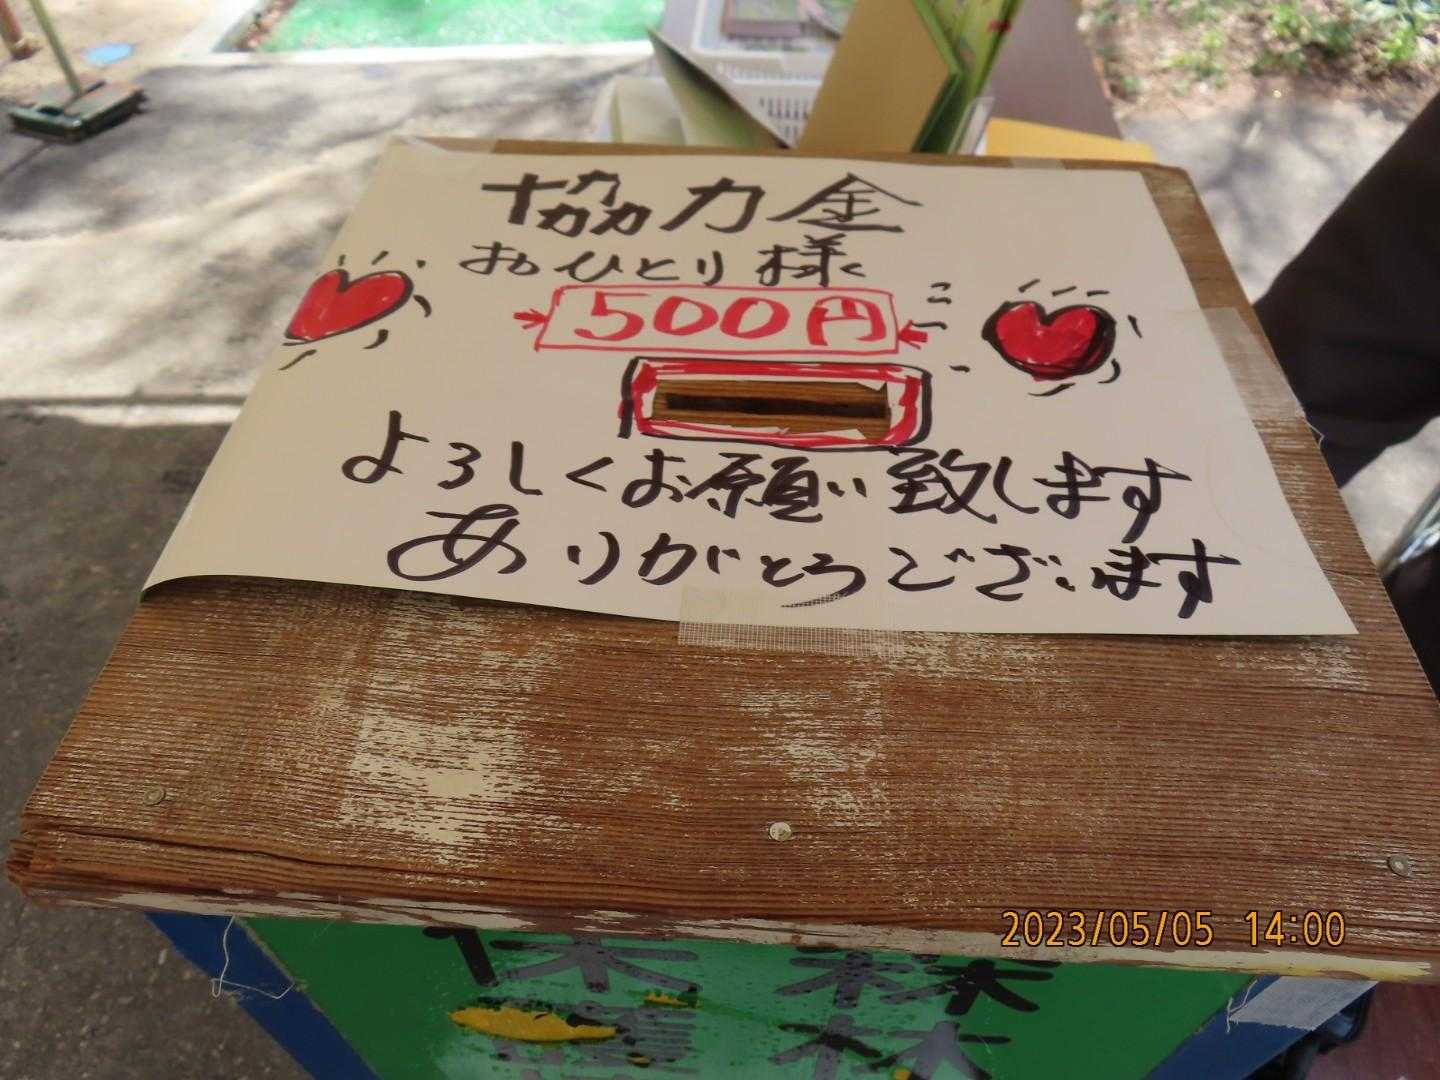 協力金
おひとり様
500円
よろしくお願い致します
ありがとうございます
2023/05/05 14:00